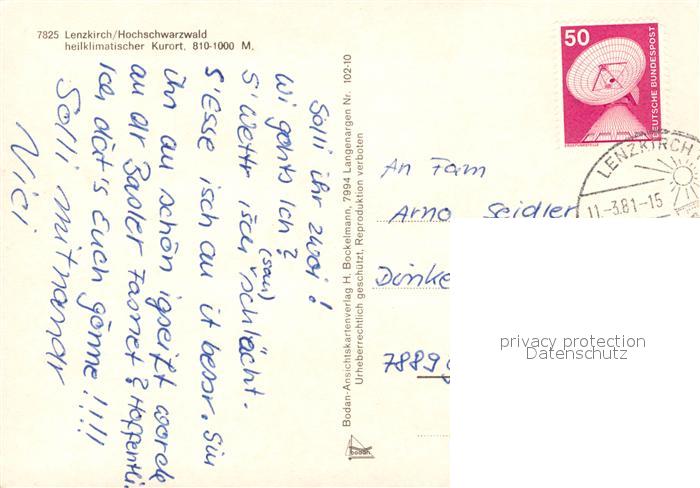 7825 Lenzkirch/Hochschwarzwald
heilklimatischer Kurort, 810-1000 M.
Solli ihr zwoi!
Wi gohts Ich?
(sau)
S'Wettr isch schlächt.
S'Esse isch au it bessr. Sin
ihr au schön igseift worde
an dr Basler Fasnet? Hoffentli
Ich dät's Euch gönne!!!!
Solli mitnandr
Vici
Bodan-Ansichtskartenverlag H. Bockelmann, 7994 Langenargen Nr. 102-10
Urheberrechtlich geschützt, Reproduktion verboten
bodan
50
DEUTSCHE BUNDESPOST
LENZKIRCH
11.-3.81-15
An Fam
Arno Seidler
Dinke
7889
privacy protection
Datenschutz